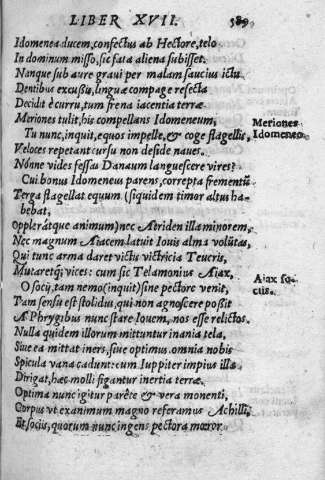 LIBER XVII. 389
Idomenea ducem, confectus ab Hectore, telo
In dominum misso, sic fata aliena subisset.
Nanque sub aure graui per malam saucius ictu
Dentibus excussis, linguæ compage resecta
Decidit è curru, tum frena iacentia terræ
Meriones tulit, his compellans Idomeneum,
Meriones
Tu nunc, inquit, equos impelle, & coge flagellis,
Idomeneo
Veloces repetant cursu non deside naues.
Nónne vides fessas Danaum languescere vires?
Cui bonus Idomeneus parens, correpta frementũ
Terga flagellat equum (siquidem timor altus ha-
bebat,
Opplerátque animum) nec Atriden illa minorem,
Nec magnum Aiacem latuit Iouis alma volũtas,
Qui tunc arma daret victu victricia Teucris,
Mutaretq́; vices: cum sic Telamonius Aiax,
Aiax so-
O socij, tam nemo (inquit) sine pectore venit,
ciis.
Tam sensu est stolidus, qui non agnoscere possit
A Phrygibus nunc stare Iouem, nos esse relictos.
Nulla quidem illorum mittuntur inania tela,
Siue ea mittat iners, siue optimus. omnia nobis
Spicula vana cadunt: cum Iuppiter impius illa
Dirigat, hæc molli figantur inertia terræ.
Optima nunc igitur parẽte & vera monenti,
Corpus vt exanimum magno referamus Achilli,
Et sociis, quorum nunc ingens pectora mœror